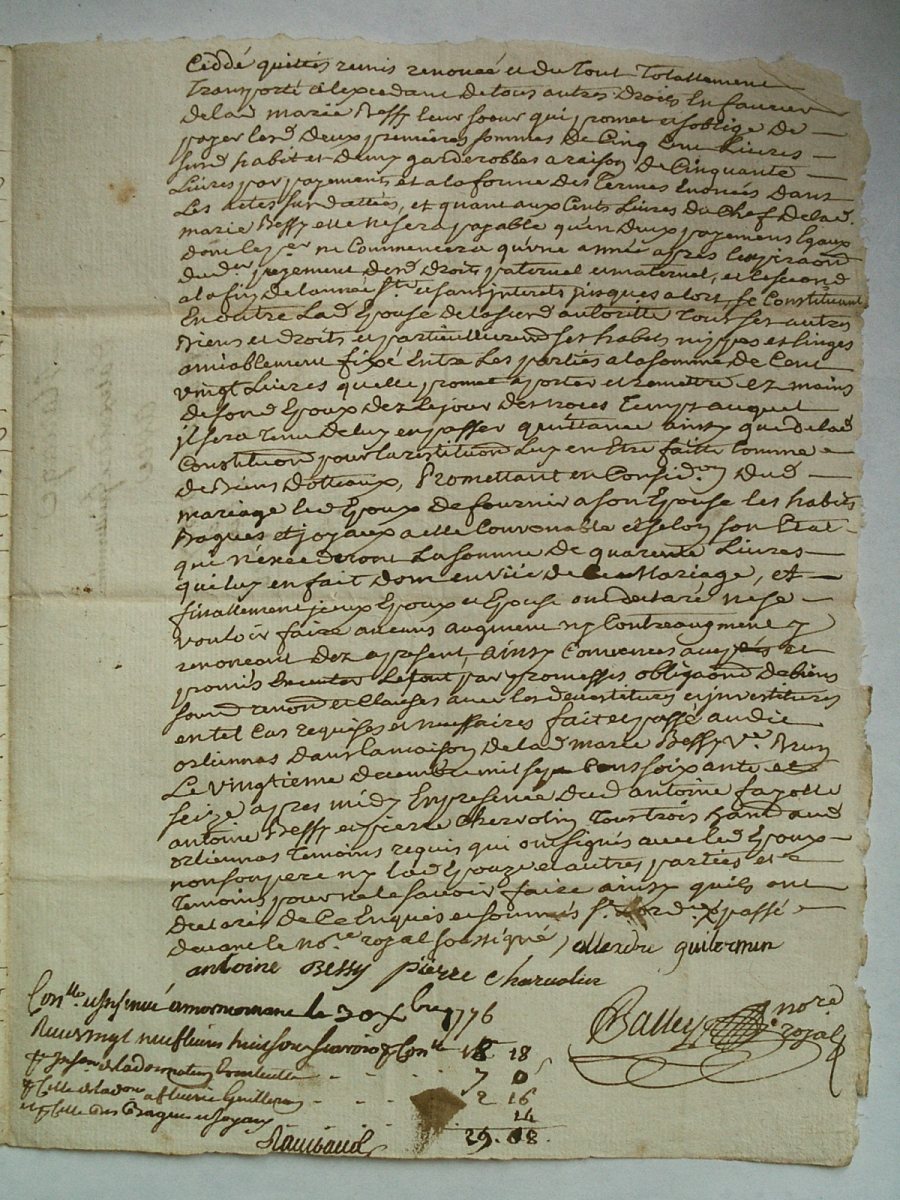 Ceddé quittés remis renoncé et du tout Totallement
Transporté et lexcedant de tous autres Droits En faveur
de lad marie Bessy leur soeur qui promet et soblige de
payer lesd deux premieres sommes de Cinq Cent Livres
susd habit et deux garderobbes a raison de Cinquante
Livres par payements et a la forme des Termes Enoncés dans
Les actes susdattées, et quant aux Cents Livres du Chef de lad
marie Bessy elle ne sera payable qu'en deux payemens Egaux
dont le pr ne Commencera qu'une année apres lexpiraon
du der payement desd droits paternel et maternel, et le second
a la fin de lannée Ste et sans interets jusques alors, se Constituant
En outre Lad Epouse de lasusd authorité Tous ses autres
Biens et droits et particullierement ses habits nippes et linges
amiablement fixé Entre Les parties a la somme de Cent
vingt Livres quelle promet aporter et remettre ez mains
de sond Epoux dez Le jour des noces Temps auquel
jl sera Tenu de luy en passer quittance ainsy que de lad
Constituon pour la restituon Luy en Etre faitte Comme
de Biens Dotteaux, Promettant en Considon dud
mariage led Epoux de fournir a son Epouse les habits
Bagues et joyaux a elle Convenable et selon son Etat
qui n'excederont La somme de quarente Livres
qu'il luy en fait dom en vüe de Ce Mariage, et
finallement jceux Epoux et Epouse ont declaré ne se
vouloir faire aucuns augment ny Contreaugment y
renonceant dez a present, ainsy Convenus acceptés et
promis Executer Le tout par promesses obligaons de biens
soumd renond et Clauses avec les devestitures et jnvestitures
en tel Cas requises et necessaires fait et passé audit
orliennas dans la maison de lad marie Bessy Ve Brun
Le vingtieme decembre mil sept Cens soixante et
seize apres midy En presence dud antoine fayolle
antoine Bessy et pierre Chervolin Tous trois habitd aud
orliennas Temoins requis qui ont signés avec led Epoux
non son pere ny lad Epouze et autres parties et
Temoins pour ne le savoir faire ainsy quils ont
declarés de Ce Enquis et sommés St Lord passé
devant le nore royal soussigné,
antoine Bessy pierre Charvolin
Conlle et Insinué a mornan le 30 Xbre 1776
Reçu vingt neuf livres huit sous
18 18
7 0
2 16
14
29. 08.
Balley nore
royal
Rambaud